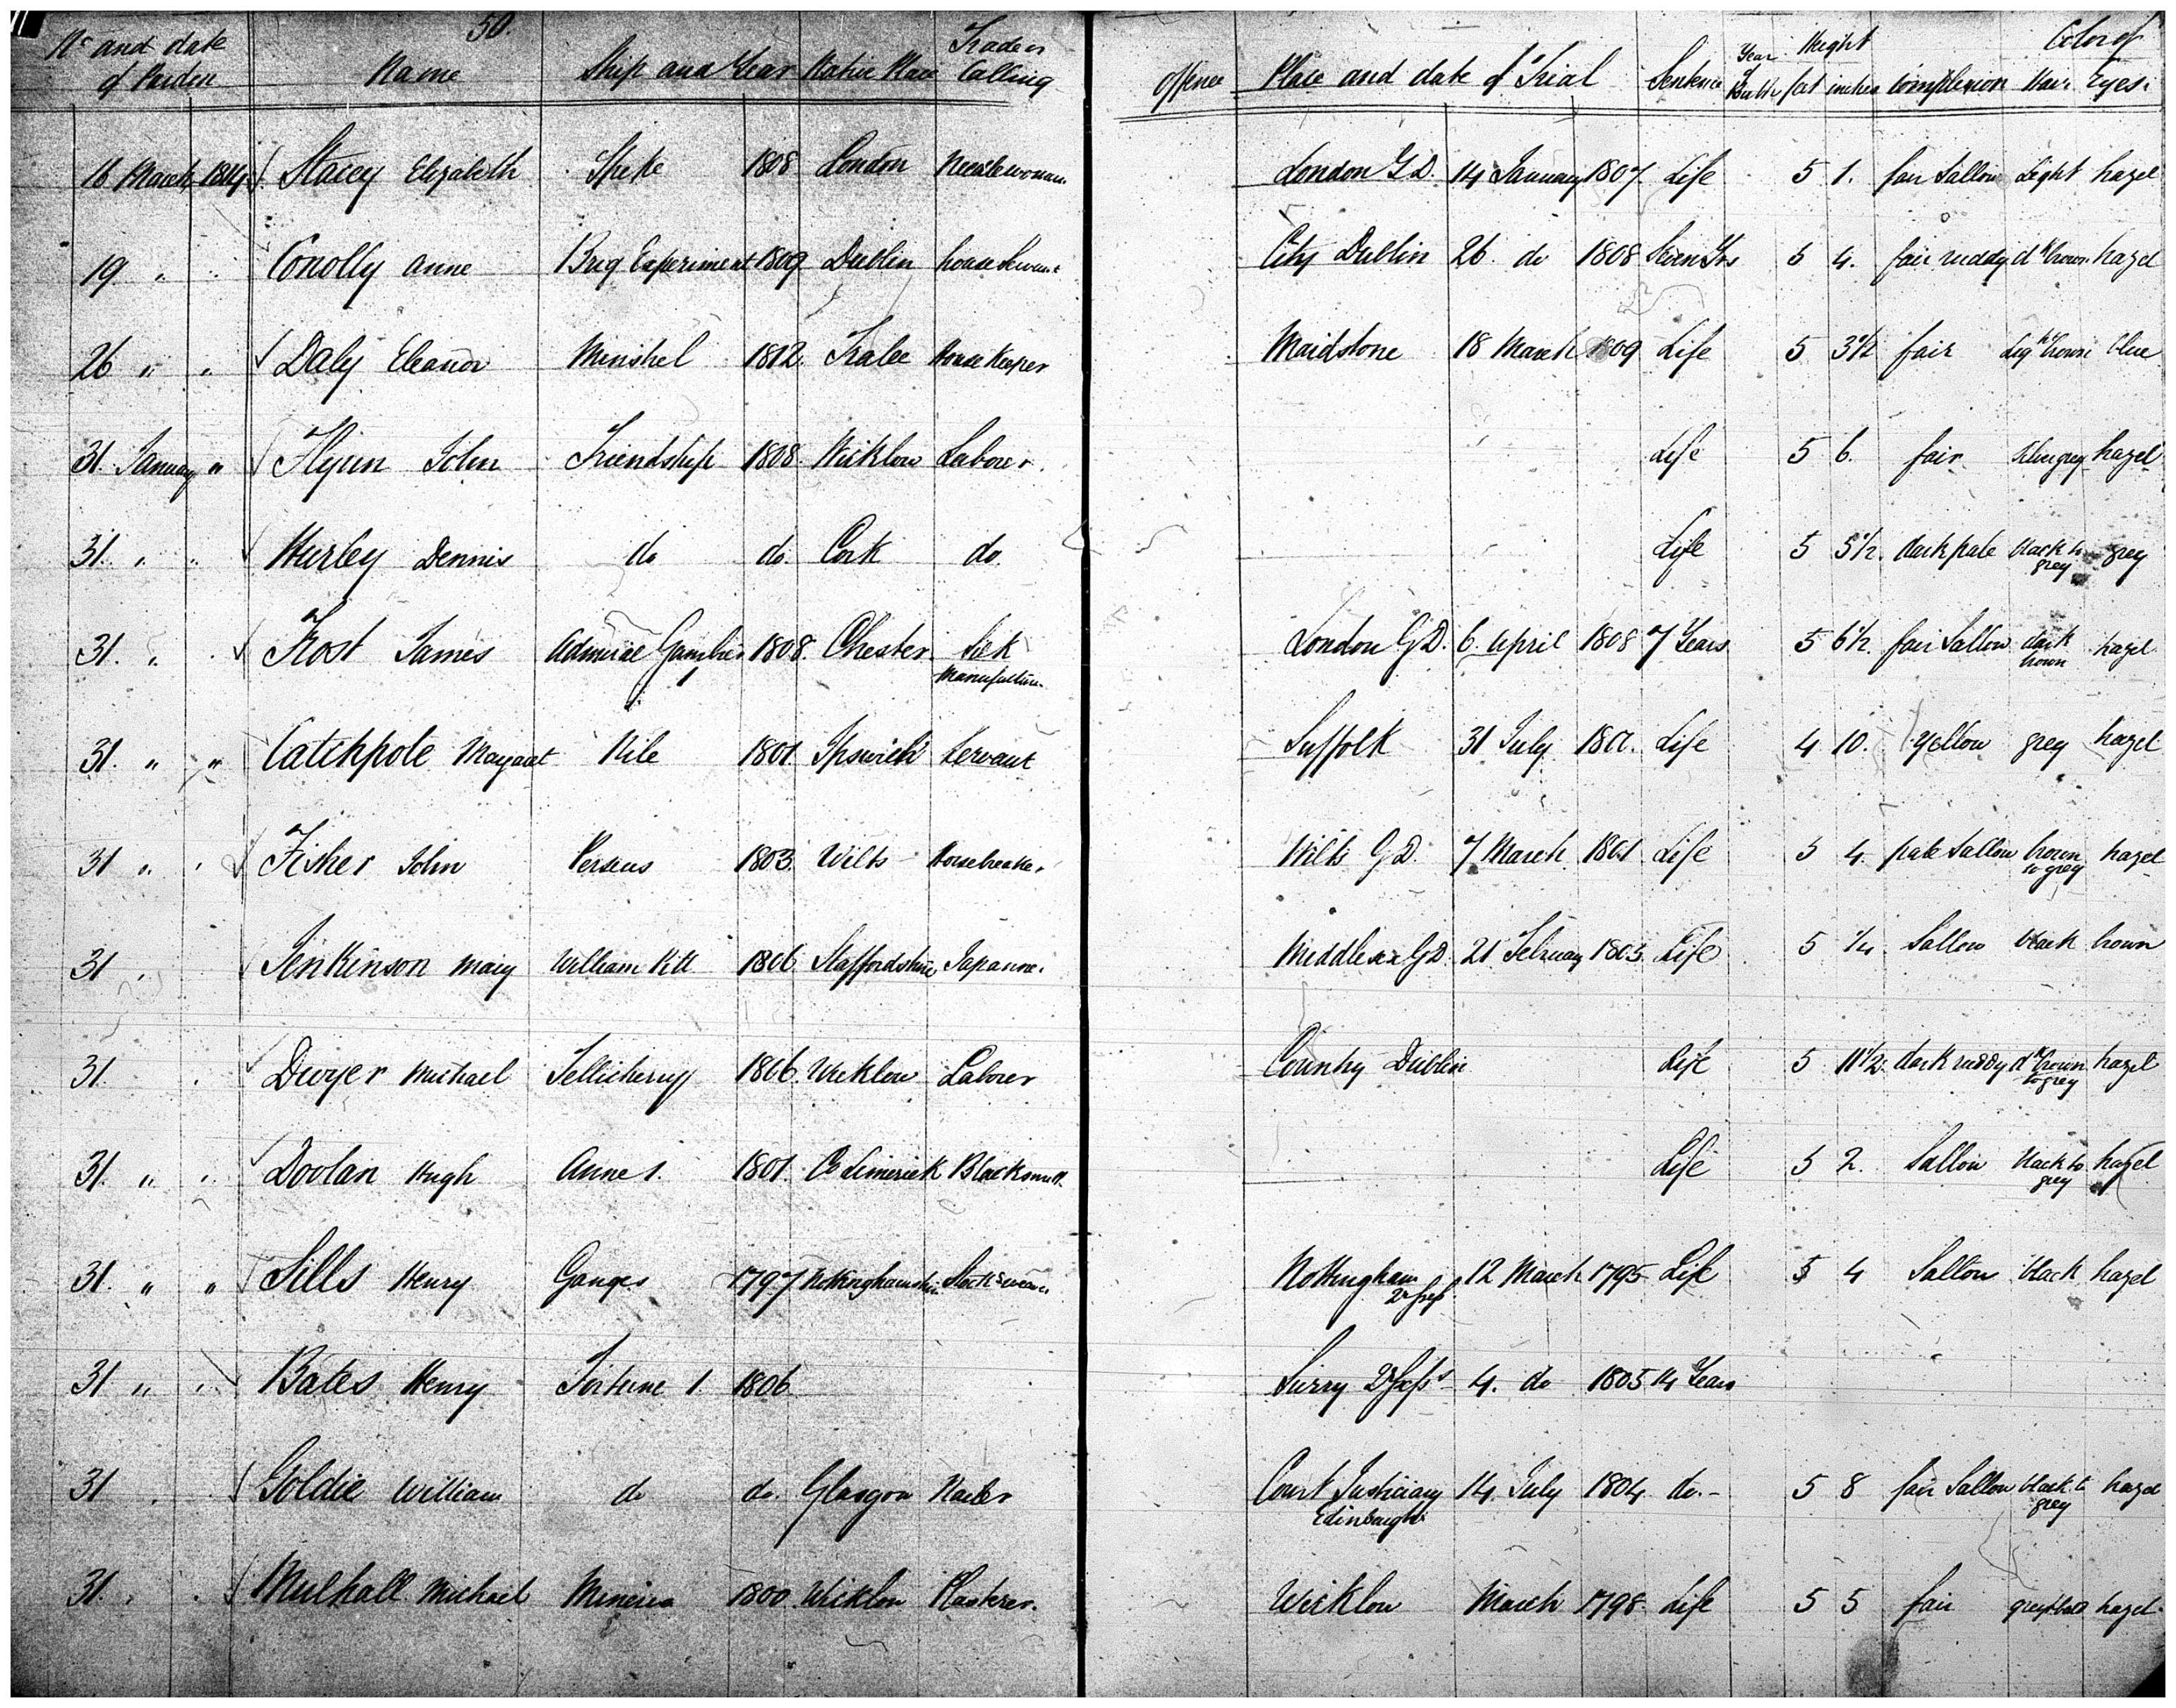 50.
No and date of Pardon Name Ship and Year Native Place Trade or Calling Offence Place and date of Trial Sentence Year Birth Height feet inches Color of complexion Hair Eyes
16 March 1814 Stacey Elizabeth Speke 1808 London Needlewoman London G.D. 14 January 1807 Life 5 1. fair Sallow Light hazel
19 " " Conolly Anne Brig Experiment 1809 Dublin house Servant City Dublin 26 do 1808 Seven Yrs 5 4. fair ruddy dk brown hazel
26 " " Daly Eleanor Minshel 1812 Tralee House Keeper Maidstone 18 March 1809 Life 5 3 1/2 fair brown blue
31. January " Flynn John Friendship 1808 Wicklow Laborer. Life 5 6. fair hazel
31. " " Hurley Dennis do do. Cork do. Life 5 5 1/2. dark pale black to grey grey
31. " . Frost James Admiral Gambier 1808. Chester Manufacturer London G.D. 6. April 1808 7 Years 5 6 1/2. fair Sallow dark brown hazel
31. " " Catchpole Margaret Nile 1801 Ipswich Servant Suffolk 31 July Life 4 10. yellow grey hazel
31 " . Fisher John Perseus 1803. Wilts Horsebreaker Wilts G.D. 7 March 1801 Life 5 4. pale Sallow brown to grey hazel
31 . Jenkinson Mary William Pitt 1806 Staffordshire Japanner Middlesex G.D. 21 February 1805 Life 5 1/4 Sallow black brown
31. . Dwyer Michael Tellicherry 1806 Wicklow Laborer County Dublin Life 5 11 1/2. dark ruddy dk brown to grey hazel
31. " . Doolan Hugh Anne 1. 1801. Co Limerick Blacksmith Life 5 2. Sallow black to grey hazel
31. " " Sills Henry Ganges 1797 Nottinghamshire Nottingham 12 March 1795 Life 5 4 Sallow black hazel
31 " " Bates Henry Fortune 1. 1806 Surry 4. do 1805 14 Years
31 . Goldie William do do. Glasgow Nailer Court Justiciary Edinburgh 14 July 1804 do.- 5 8 fair Sallow black to grey hazel
31. . Mulhall Michael Minerva 1800 Wicklow Plasterer. Wicklow March 1798 Life 5 5 fair hazel